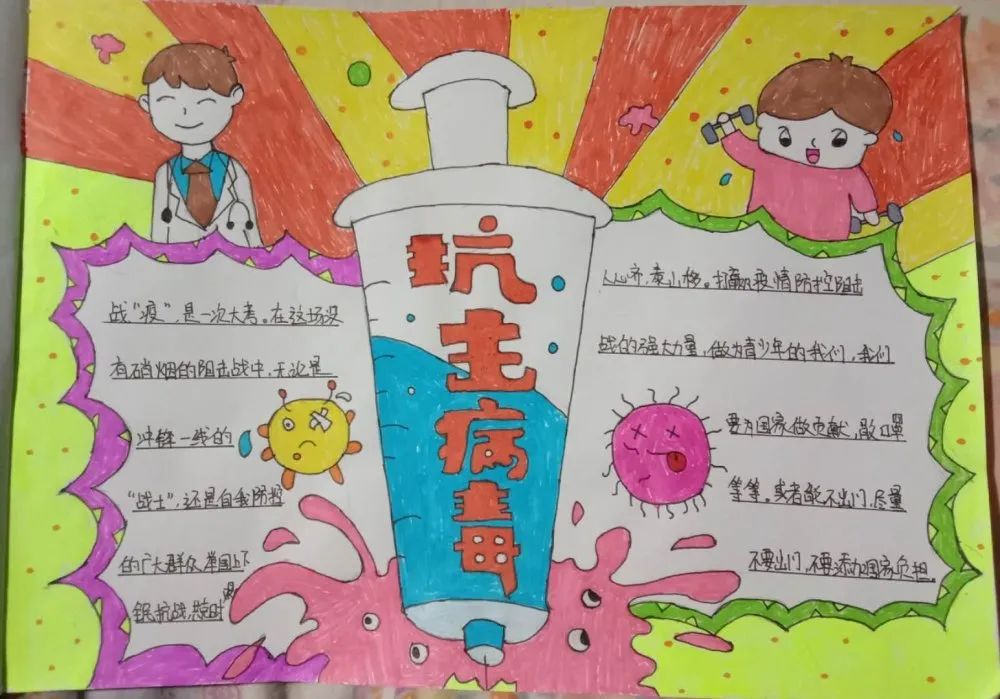 抗击病毒
战“疫”,是一次大考。在这场没
有硝烟的阻击战中,无论是
冲锋一线的
“战士”,还是自我防控
的广大群众,举国上下
民抗战,
人心齐,泰山移。打赢疫情防控阻击
战的强大力量,做为青少年的我们,我们
要为国家做贡献,戴口罩
等等。或者能不出门,尽量
不要出门,不要添加国家负担。